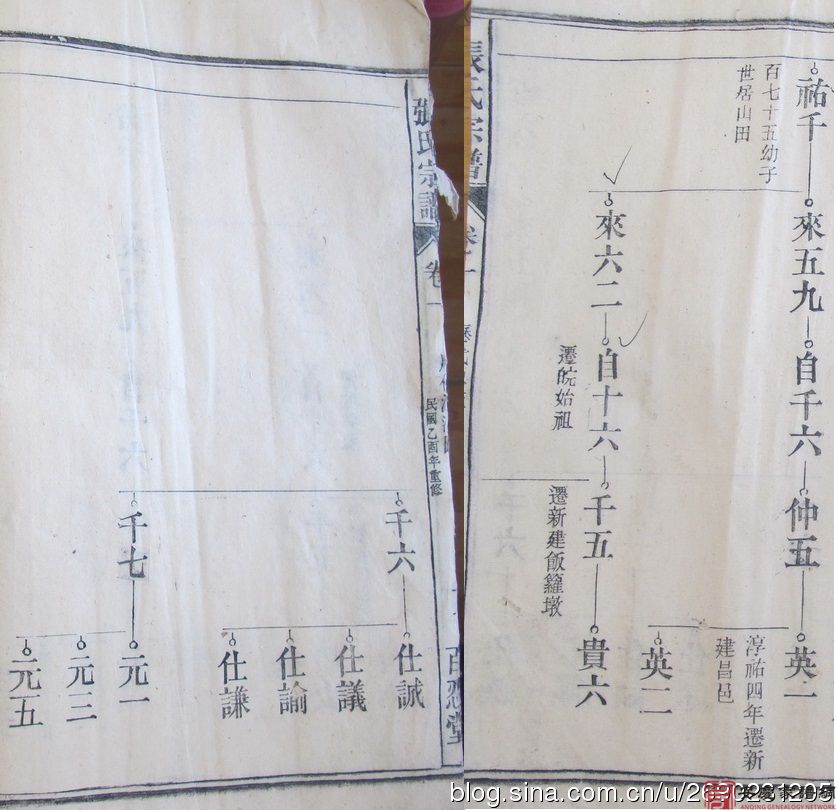 祐千
百七十五幼子
世居山田
來五九
自千六
仲五
英一
淳祐四年遷新
建昌邑
來六二
自十六
遷皖始祖
千五
遷新建飯籮墩
貴六
英二
張氏宗譜
卷一
民國乙酉年重修
千六
仕誠
仕議
仕論
仕謙
千七
元一
元三
元五
blog.sina.com.cn/u/
ANQING GENEALOGY NETWORK